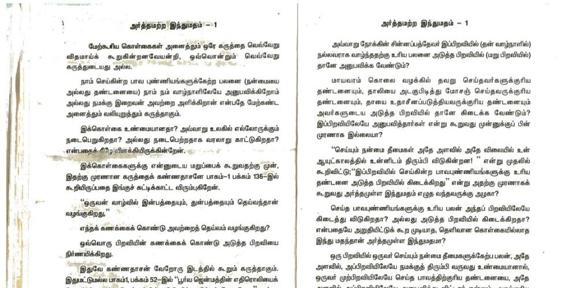 அர்த்தமற்ற இந்துமதம் – 1
மேற்கூரிய கொள்கைகள் அனைத்தும் ஒரே கருத்தை வெவ்வேறு
விதமாய்க் கூறுகின்றனவேயன்றி, ஒவ்வொன்றும் வெவ்வேறு
கருத்துடையது அல்ல.
நாம் செய்கின்ற பாவ புண்ணியங்களுக்கேற்ற பலனை (நன்மையை
அல்லது தண்டனையை) நாம் நம் வாழ்நாளிலேயே அனுபவிக்கிறோம்
அல்லது நமக்கு இறைவன் அவற்றை அளிக்கிறான் என்பதே மேற்கண்ட
அனைத்தும் வலியுறுத்தும் கருத்தாகும்.
இக்கொள்கை உண்மையானதா? அவ்வாறு உலகில் எல்லோருக்கும்
நடைபெறுகிறதா? அல்லது நடைபெற்றதாக வரலாறு காட்டுகிறதா?
என்பதைச் சற்று
இக்கொள்கைகளுக்கு என்னுடைய மறுப்பைக் கூறுவதற்கு முன்,
இதற்கு முரணாக கருத்தைக் கண்ணதாசனே பாகம்–1 பக்கம் 136–இல்
கூறியிருப்பதை இங்குச் சுட்டிக்காட்ட விரும்புகிறேன்.
"ஒருவன் வாழ்வில் இன்பத்தையும், துன்பத்தையும் தெய்வந்தான்
வழங்குகிறது."
எந்தக் கணக்கைக் கொண்டு அவற்றைத் தெய்வம் வழங்குகிறது?
ஒவ்வொரு பிறவியின் கணக்கைக் கொண்டு அடுத்த பிறவியை
நிர்ணயிக்கிறது.
இதுவே கண்ணதாசன் வேறொரு இடத்தில் கூறும் கருத்தாகும்.
இதுமட்டுமல்ல பாகம்1, பக்கம் 52–இல் "பூர்வ ஜென்மத்தின் எதிரொலியைக்
அர்த்தமற்ற இந்துமதம் – 1
அவ்வாறு நோக்கின் சின்னப்பத்தேவர் இப்பிறவியில் (தன் வாழ்நாளில்)
நல்லவராக வாழ்ந்ததற்கு உரிய பலனை அடுத்த பிறவியில் (மறு பிறவியில்)
தானே அனுபவிக்க வேண்டும்?
மாயவரம் கொலை வழக்கில் தவறு செய்தவர்களுக்குரிய
தண்டனையும், தாலியை அடகுபிடித்து மோசஞ் செய்தவருக்குரிய
தண்டனையும், தாயை உதாசீனப்படுத்தியவருக்குரிய தண்டனையும்
அவர்களுடைய அடுத்த பிறவியில் தானே கிடைக்க வேண்டும்?
இப்பிறவியிலேயே அனுபவித்தார்கள் என்று கூறுவது முன்னுக்குப் பின்
முரணாக இல்லையா?
"செய்யும் நன்மை தீமைகள் அதே அளவில், அதே விலையில் உன்
ஆயுட்காலத்தில் உன்னிடம் திரும்பி விடுகின்றன! " என்று முதலில்
கூறிவிட்டு;"இப்பிறவியில் செய்கின்ற பாவபுண்ணியங்களுக்கு உரிய
தண்டனை அடுத்த பிறவியில் கிடைக்கிறது" என்று அதற்கு முரணாகக்
கூறுவது அர்த்தமுள்ள இந்துமதம் எழுத வந்தவருக்கு அழகா?
செய்த பாவபுண்ணியங்களுக்கு உரிய பலன் அந்தப் பிறவியிலேயே
கிடைத்து விடுகிறதா? அல்லது அடுத்த பிறவியில் கிடைக்கிறதா?
என்பதையே அறுதியிட்டுக் கூற முடியாத, தெளிவான கொள்கையில்லாத
இந்து மதந்தான் அர்த்தமுள்ள இந்துமதமா?
ஒரு பிறவியில் ஒருவர் செய்யும் நன்மை தீமைகளுக்கேற்ப பலன், அதே
அளவில், அப்பிறவியிலேயே நமக்குத் திரும்பி வருவது உண்மையானால்,
ஒருவர் முற்பிறவியிலேயே செய்த பாவத்திற்குரிய தண்டனையை, அதே
அளவில், அப்பிறவியிலேயே